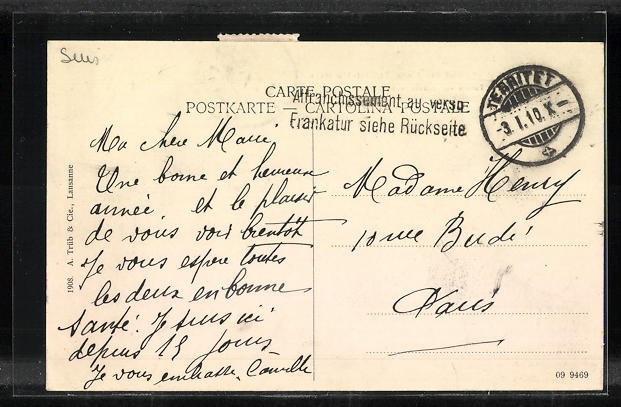 Suis
CARTE POSTALE
POSTKARTE — CARTOLINA POSTALE
Affranchissement au verso
Frankatur siehe Rückseite
TERRITET
-3.I.10.X-
Ma chère Marie
Une bonne et heureuse
année, et le plaisir
de vous voir bientôt
Je vous espère toutes
les deux en bonne
santé. Je suis ici
depuis 15 jours
Je vous embrasse. Camille
Madame Henry
10 rue Budé
Paris
1908. A. Trüb & Cie., Lausanne
09 9469